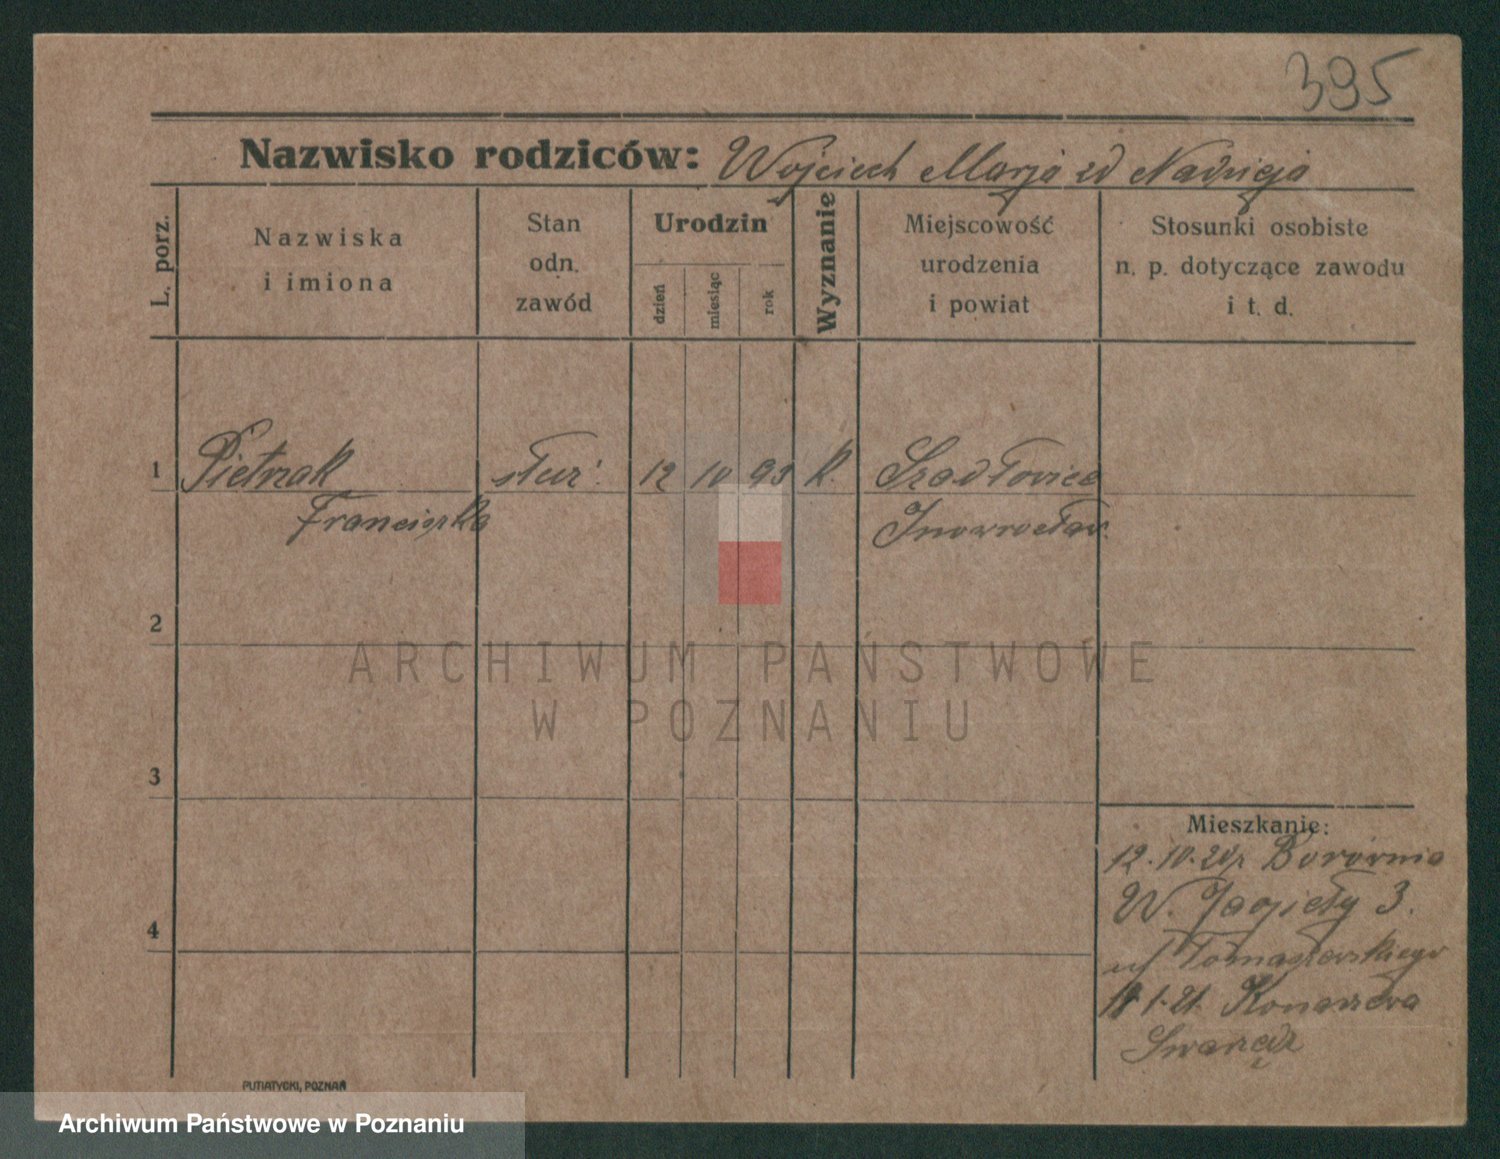 395
Nazwisko rodziców: Wojciech Marja zd Nadzieja
L. porz.
Nazwiska
i imiona
Stan
odn.
zawód
Urodzin
dzień
miesiąc
rok
Wyznanie
Miejscowość
urodzenia
i powiat
Stosunki osobiste
n. p. dotyczące zawodu
i t. d.
1
Pietrzak służ. 12 10 93 k. Szadłovice
Franciszka Inowrocław.
2
ARCHIWUM PAŃSTWOWE
W POZNANIU
3
Mieszkanie:
12.10.20 z
W. Jagiełły 3.
u/ Tomaszewskiego
1.21. Konarzewa
Swarzędz
4
PUTIATYCKI, POZNAŃ
Archiwum Państwowe w Poznaniu